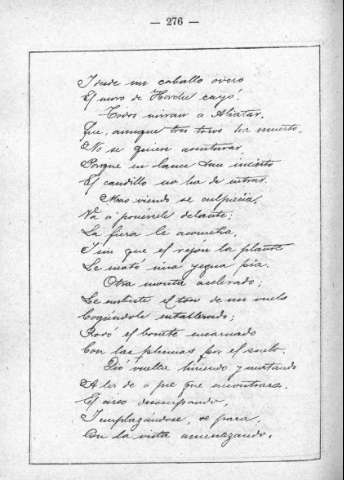 — 276 —
Y desde un caballo overo
El moro de Horche cayó.
Todos miran a Aliatar,
Que, aunque tres toros ha muerto,
No se quiere aventurar,
Porque en lance tan incierto
El caudillo no ha de entrar.
Mas viendo se culparía,
Va á ponérsele delante;
La fiera le acometía,
Y sin que el rejón la plante
Le mató una yegua pía.
Otra monta acelerado;
Le embiste el toro de un vuelo
Cogiéndole entablerado;
Rodó el bonete encarnado
Con las plumas por el suelo.
Dió vuelta hiriendo y matando
A los de a pie que encontrara,
El circo desocupando,
Y emplazándose, se para,
Con la vista amenazando.